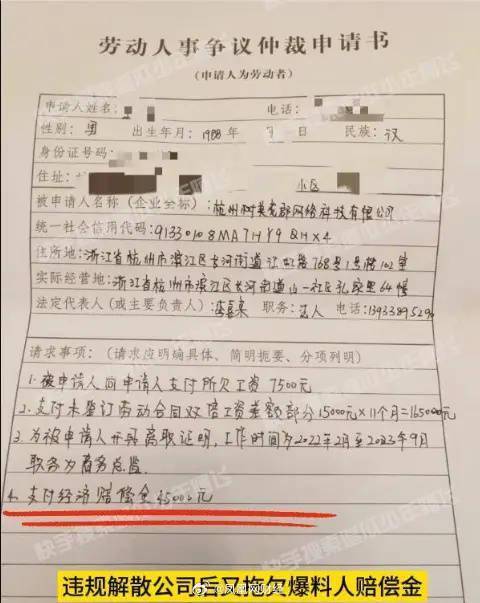 劳动人事争议仲裁申请书
(申请人为劳动者)
申请人姓名: 电话:
性别: 男 出生年月: 1988年 日 民族: 汉
身份证号码:
住址: 小区
被申请人名称(企业全称): 杭州树美克郡网络科技有限公司
统一社会信用代码: 91330108MA7HY9QHX4
住所地: 浙江省杭州市滨江区长河街道江虹路768号1号楼102室
实际经营地: 浙江省杭州市滨江区长河街道山一社区孔家里64幢
法定代表人(或主要负责人): 职务: 法人 电话:
请求事项: (请求应明确具体、简明扼要、分项列明)
1. 被申请人向申请人支付所欠工资 7500元
2. 支付未签订劳动合同双倍工资差额部分15000元×11个月=165000元
3. 为被申请人开具离职证明,工作时间为2022年2月至2023年9月
职务为商务总监.
4. 支付经济赔偿金45000元
@凤凰网财经
违规解散公司后又拖欠爆料人赔偿金